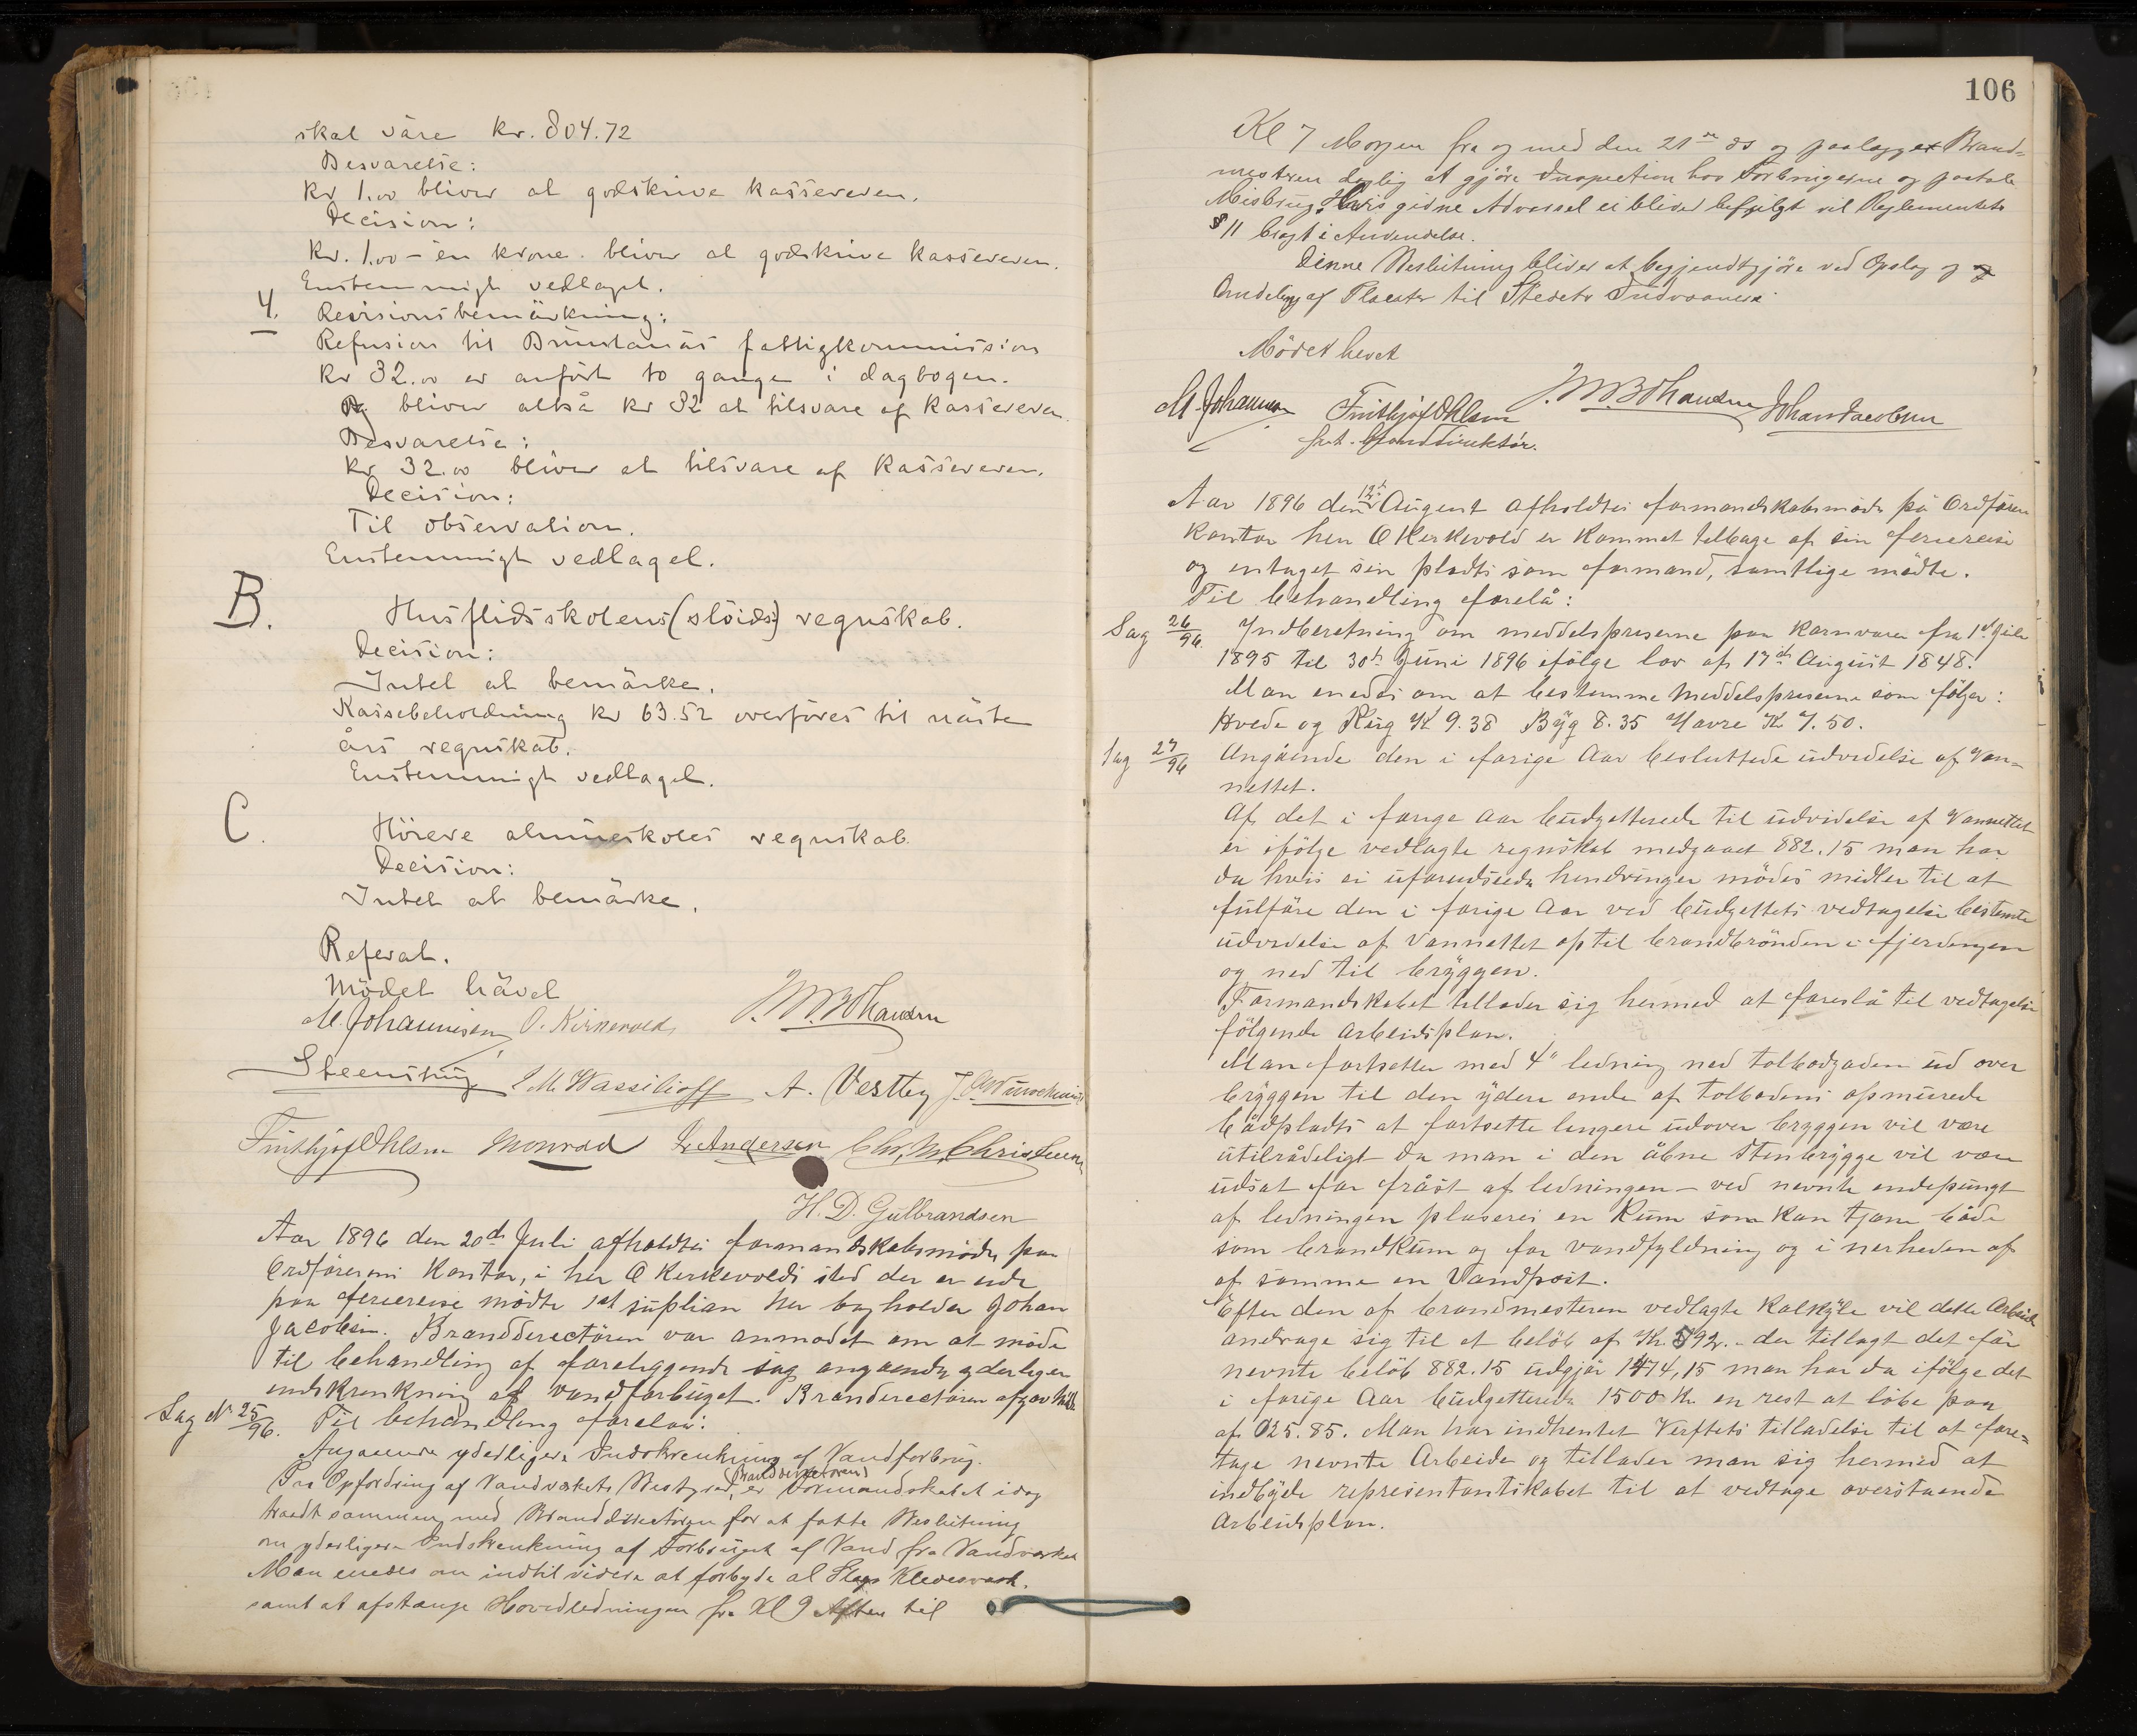 skal väre kr. 804.72
Besvarelse:
kr 1.00 bliver at godskrive kassereren.
Decision:
kr. 1.00 – en krone bliver at godskrive kassereren.
Enstemmigt vedtaget.
4. Revisionsbemärkning:
Refusion til fattigkommission
kr 32.00 er anfört to gange i dagbogen.
Og bliver altså kr 32 at tilsvare af kassereren
Besvarelse:
kr 32.00 bliver at tilsvare af kassereren.
Decision:
Til observation.
Enstemmigt vedtaget.
B. Husflidsskolens (slöids) regnskab.
Decision:
Intet at bemärke.
Kassebeholdning kr 63.52 overföres til näste
års regnskab.
Enstemmigt vedtaget.
C. Höiere almueskoles regnskab
Decision:
Intet at bemärke.
Referat.
Mödet hävet
M. Johannesen O. Kirkevold J. M. B. Johansen
Steenstrup M. Wassilioff A. Vestby
Frithjof Ohlsen Monrad L. Andersen Chr. M. Christensen
H. D. Gulbrandsen
Aar 1896 den 20de Juli afholdtes formandskabsmöde paa
Ordförerens Kontor, i her O Kerkevolds sted der er ude
paa feriereise mödte 1st suplian her bogholder Johan
Jacobsen. Brandderectören var anmodet om at möde
til behandling af foreliggende sag angaaende yderligere
endskrenkning af vandforbuget. Branderectören afgav
Sag No 25/96. Til behandling forelaa:
Angaaende yderligere Indskrenkning af Vandforbrug.
Paa Opfordring af Vandværkets Bestyrer, er (Branddirektøren) Formandskabet idag
traadt sammen med Branddirektøren for at fatte Beslutning
om yderligere Indskrenkning af Forbruget af Vand fra Vandværket
Man enedes om indtil videre at forbyde al Slags Klædesvask.
samt at afstænge Hovedledningen fra Kl 9 Aften til
106
Kl 7 Morgen fra og med den 21de ds og paalægges Brand-
mesteren daglig at gjöre Inspection hos Forbrugerne og paatale
Misbrug. Hvis givne Advarsel ei bliver befulgt vil Reglementets
§ 11 bragt i Anvendelse.
Denne Beslutning bliver at bekjendtgjöre ved Opslag og
Omdeling af Placater til Stedets Indvaanere.
Mödet hevet
M. Johannesen Frithjof Ohlsen J. M. B. Johansen Johan Jacobsen
fut. branddirektör.
Aar 1896 den 12te August afholdtes formandskabsmöde på Ordförer
kontor her O Kerkevold er kommet tilbage af sin feriereise
og entaget sin pladts som formand, samtlige mödte.
Til behandling forelå:
Sag 26/96 Indberetning om meddelspriserne paa kornvarer fra 1st Juli
1895 til 30te Juni 1896 ifölge lov af 17de August 1848.
Man enedes om at bestemme meddelspriserne som fölger:
Hvede og Rug Kr 9.38 Byg 8.35 Havre Kr 7.50.
Sag 27/96 Angående den i forige Aar besluttede udvidelse af Van-
nettet.
Af det i forige Aar budgetterede til udvidelse af Vannettet
er ifölge vedlagte regnskab medgaaet 882.15 man har
da hvis ei uforudseede hendringer mödes midler til at
fulföre den i forige Aar ved budgettets vedtagelse bestemte
udvidelse af Vannettet op til brandbrönden i fjerdingen
og ned til bryggen.
Formandskabet tillader sig hermed at foreslå til vedtagelse
fölgende Arbeidsplan.
Man fortsetter med 4" ledning ned tolbodgaden ud over
bryggen til den ydere ende af tolbodens opmurede
bådplads at fortsette lengere udover bryggen vil være
utilrådeligt da man i den åbne Stenbrygge vil være
udsat for fråst af ledningen – ved nevnte endepungt
af ledningen plaseres en Kum som kan tjene både
som brandkum og for vandfyldning og i nerheden af
af samme en Vandpost.
Efter den af brandmesteren vedlagte kalkyle vil dette Arbeide
andrage sig til et belöb af Kr. 592.- der tillagt det för
nevnte belöb 882.15 udgjör 1474,15 man har da ifölge det
i forige Aar budgetterede 1500 Kr en rest at löbe paa
af 25.85. Man har indhentet Verftets tilladelse til at fore-
tage nevnte Arbeide og tillader man sig hermed at
indbyde representantskabet til at vedtage overstaaende
Arbeidsplan.